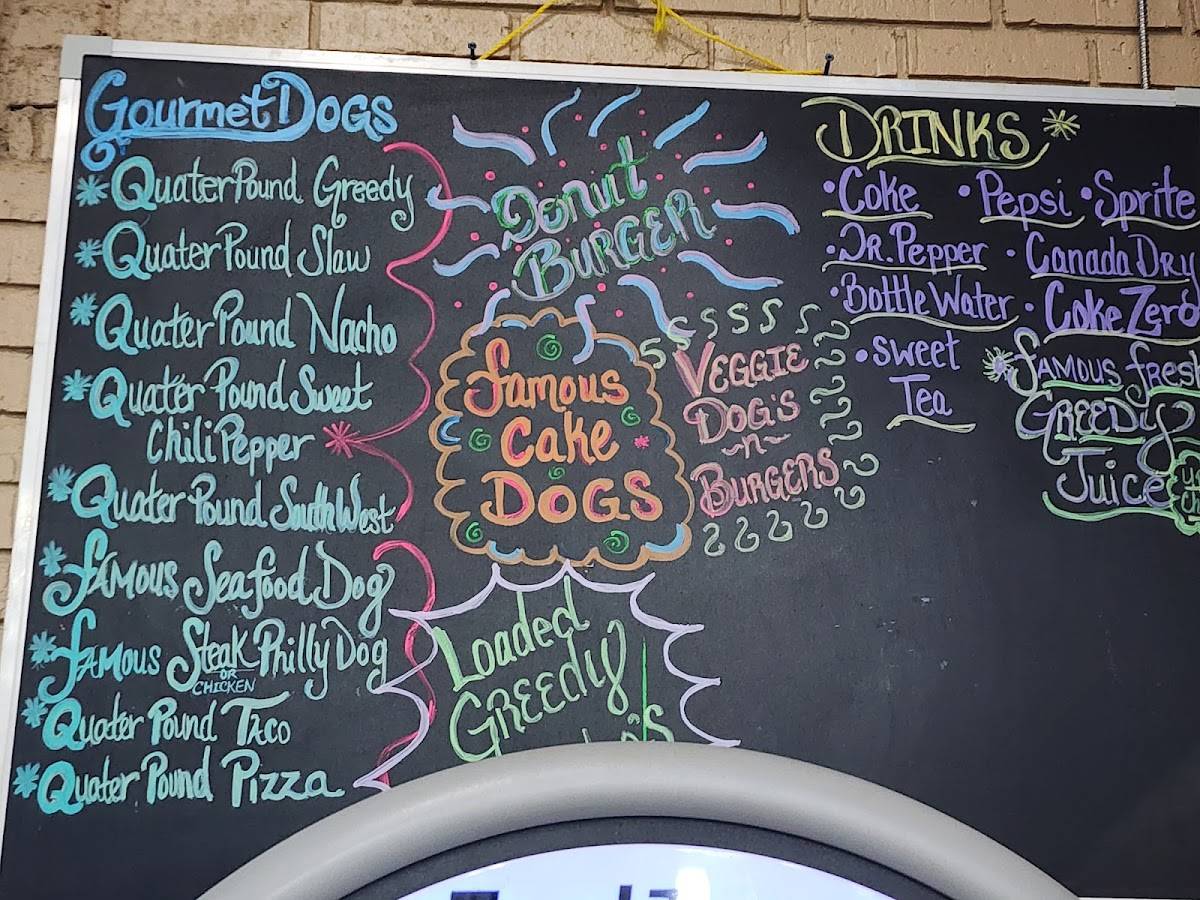 Gourmet Dogs
Quater Pound Greedy
Quater Pound Slaw
Quater Pound Nacho
Quater Pound Sweet
Chili Pepper
Quater Pound SouthWest
Famous Seafood Dog
Famous Steak Philly Dog
or
Chicken
Quater Pound Taco
Quater Pound Pizza
Donut
Burger
Famous
Cake
Dogs
Veggie
Dog's
-n-
Burgers
Loaded
Greedy
Drinks
•Coke •Pepsi •Sprite
•Dr. Pepper •Canada Dry
•Bottle Water •Coke Zero
•Sweet
Tea
Famous Fresh
Greedy
Juice